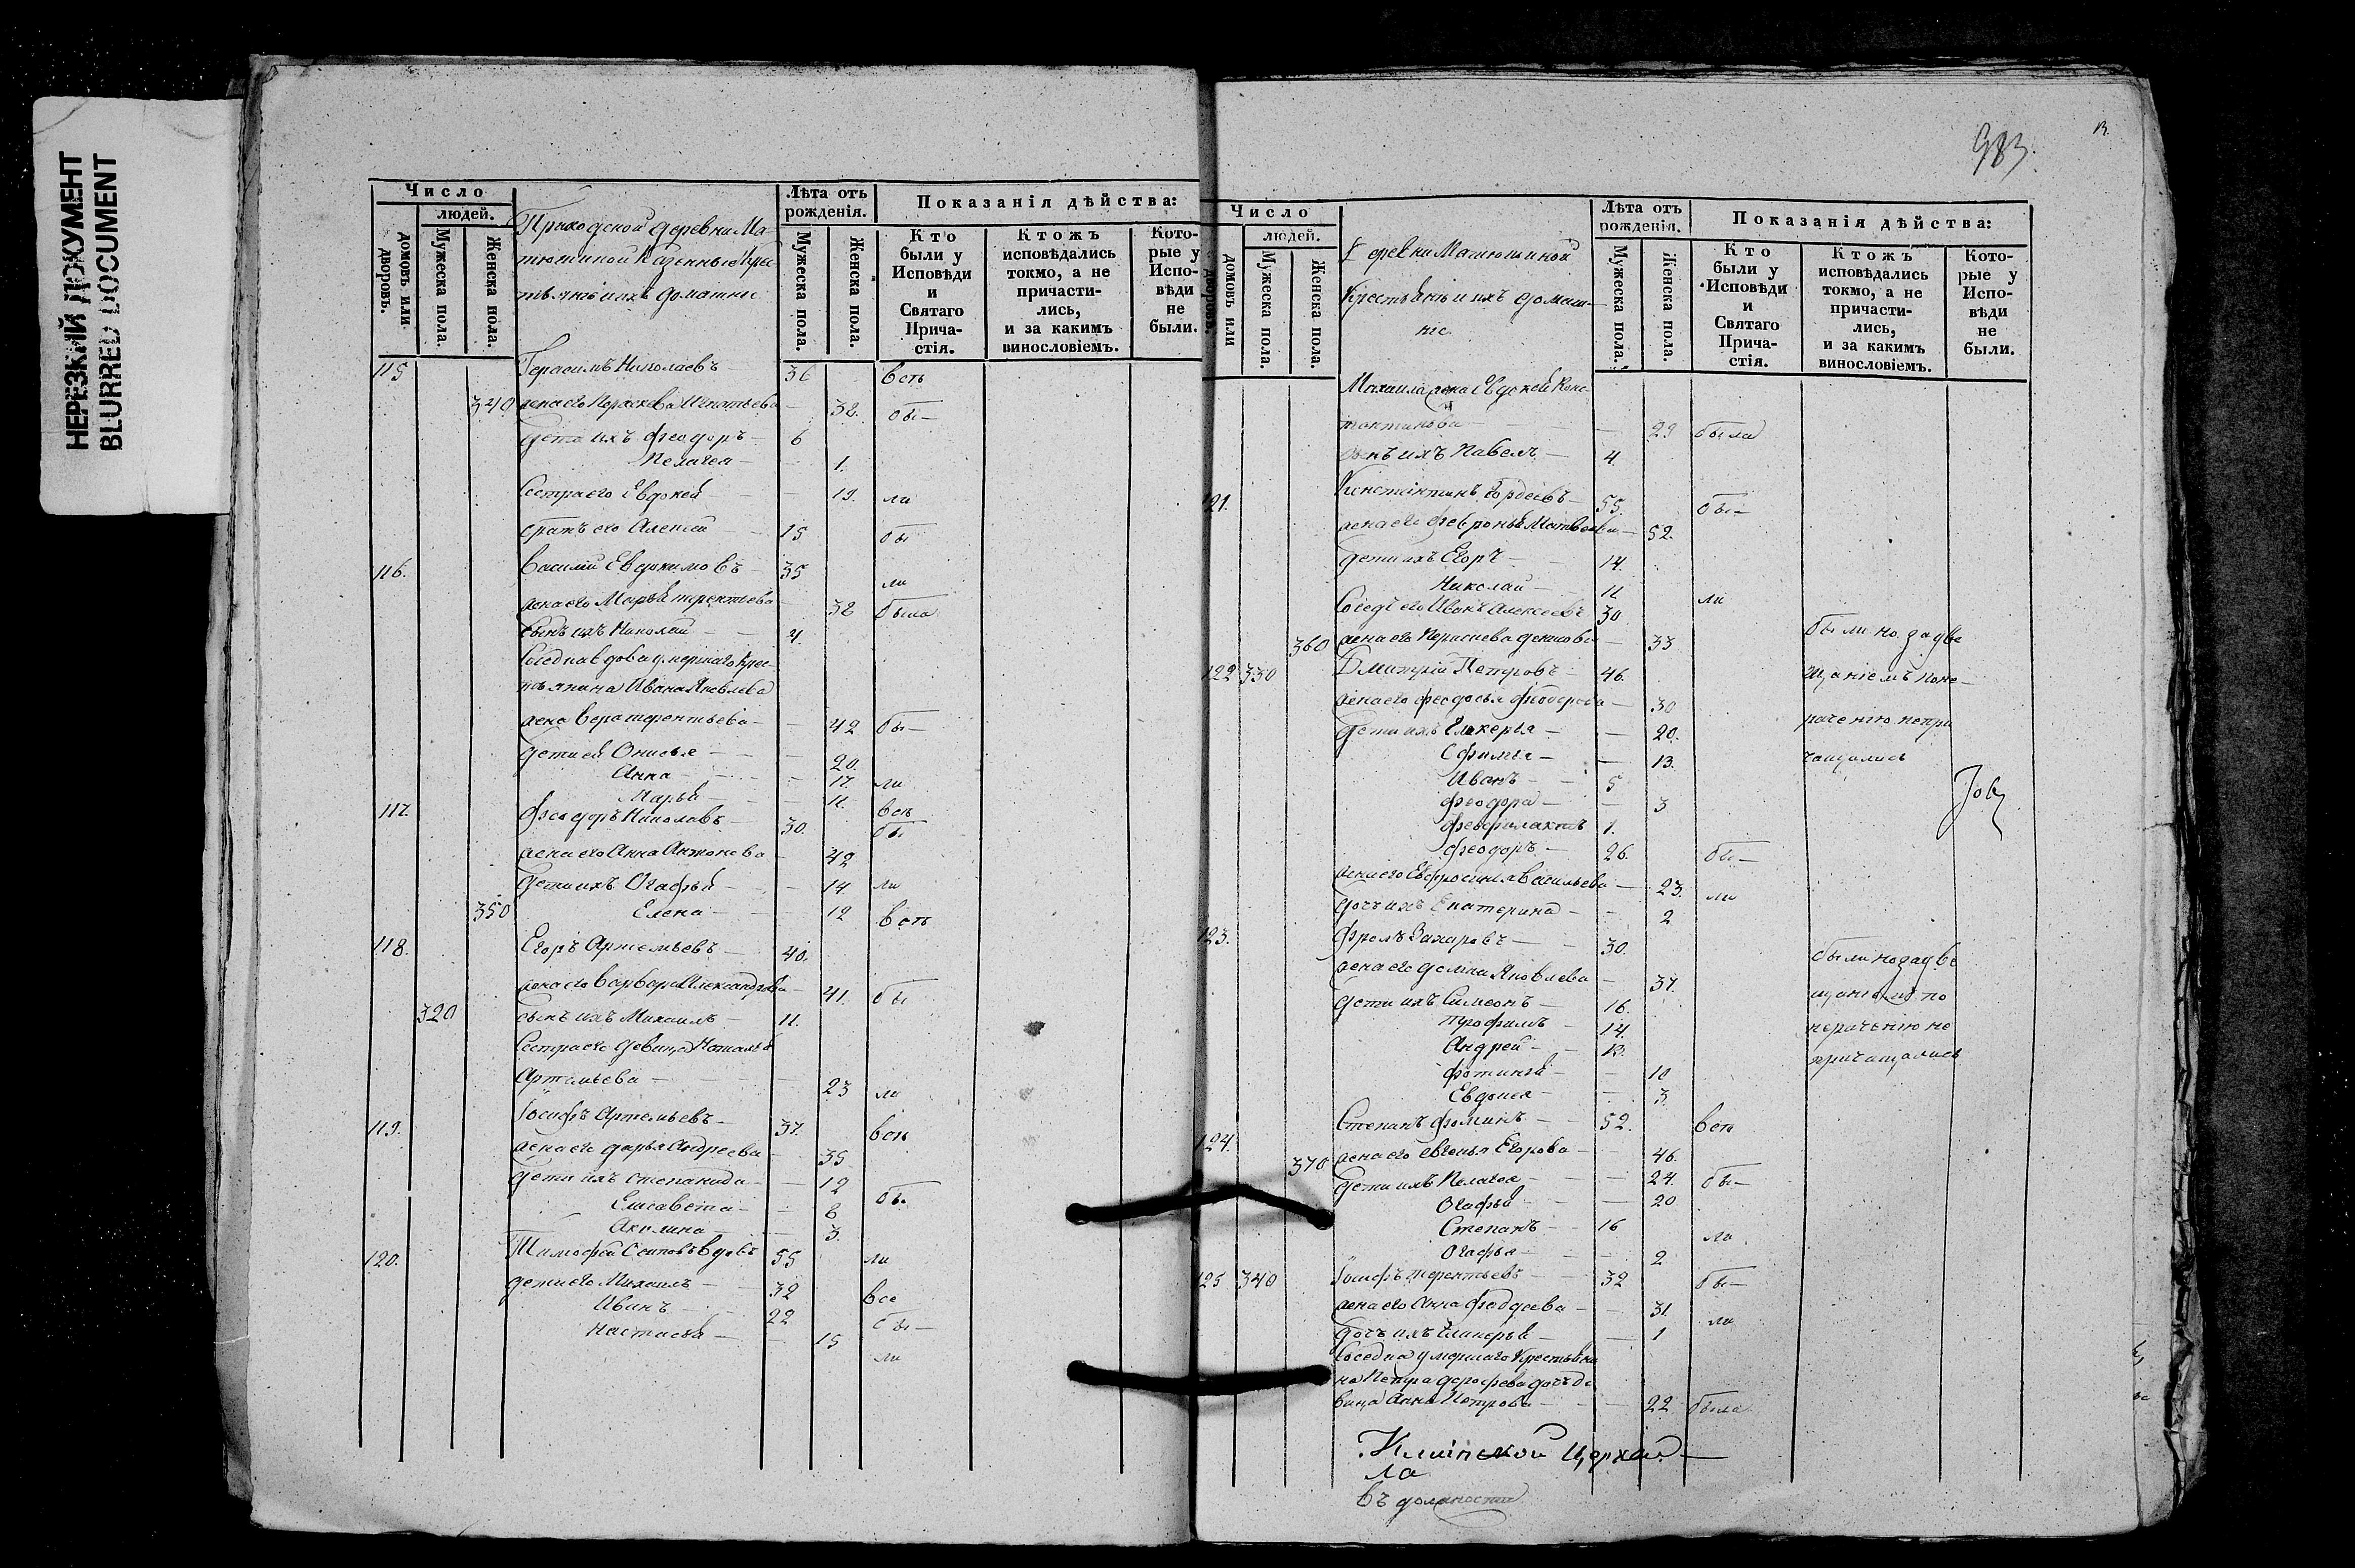 НЕРЕЗКИЙ ДОКУМЕНТ
BLURRED DOCUMENT
Число
людей.
домовъ или дворовъ.
Мужеска пола.
Женска пола.
Приходской деревни Ма-
тюшиной Казенные Крес-
тьяне и ихъ домашние
Лѣта отъ рожденія.
Мужеска пола.
Женска пола.
Показанія дѣйства:
Кто были у Исповѣди и Святаго Прича-стія.
Ктожъ исповѣдались токмо, а не причасти-лись, и за какимъ винословіемъ.
Кото-рые у Испо-вѣди не были.
115 Герасимъ Николаевъ 36 всѣ
340 жена его Параскева Игнатьева 32. бы
дети ихъ Феодоръ 6
Пелагея 1.
Сестра его Евдокея 19. ли
братъ его Алексей 15 бы
116. Василий Евдокимовъ 35 ли
жена его Марья терентьева 38 была
сынъ ихъ Николай 4.
Соседка вдова умершаго Крес-
тьянина Ивана Яковлева
жена Вера терентьева 42 бы
дети ей Онисья 20.
Анна 17. ли
Марья 11. всѣ
117. Феодоръ Николаевъ 30. бы
жена его Анна Антонова 42
дети ихъ Огафья 14 ли
350 Елена 12 всѣ
118. Егоръ Артемьевъ 40.
жена его Варвара Александрова 41. бы
320 сынъ ихъ Михаилъ 11.
Сестра его девица Наталья
Артемьева 23 ли
119. Іосифъ Артемьевъ 37. всѣ
жена его дарья Андреева 35
дети ихъ степанида 12 бы
Елисавета 8
Акилина 3.
120. Тимофей Осиповъ вдовъ 55 ли
дети его Михаилъ 32 все
Иванъ 22 бы
Настасья 15 ли
983.
Число
людей.
домовъ или дворовъ.
Мужеска пола.
Женска пола.
Деревни Матюшиной
Крестьяне и ихъ домаш-
ніе
Лѣта отъ рожденія.
Мужеска пола.
Женска пола.
Показанія дѣйства:
Кто были у Исповѣди и Святаго Прича-стія.
Ктожъ исповѣдались токмо, а не причасти-лись, и за какимъ винословіемъ.
Кото-рые у Испо-вѣди не были.
Михаила жена Евдокея Конс-
тантинова 29 была
сынъ ихъ Павелъ 4.
121. Константинъ Гордеевъ 55. бы
жена его Февронья Матвеева 52.
дети ихъ Егоръ 14.
Николай 11 ли
Соседъ его Иванъ Алексеевъ 30
360 жена его Параскева денисова 33 были но за две
122 330 Дмитрий Петровъ 46. щаніемъ по не
жена его Феодосья Феодорова 30
дети ихъ Гликерья 20. рачению непри
Ефимья 13. чащались
Иванъ 5
Феодора 3
Феофилактъ 1.
Феодоръ 26. бы
жена его Евфросиния Васильева 23. ли
дочь ихъ Екатерина 2
123. Фролъ Захаровъ 30. были но за две
жена его домна Яковлева 37.
дети ихъ Симеонъ 16. щаніемъ по
Трофимъ 14. нерачению не
Андрей 13. причащались
Фотинья 10
Евдокея 3.
124. Степанъ Фоминъ 52. всѣ
370 жена его Евгенья Егорова 46.
дети ихъ Пелагея 24. бы
Огафья 20
Степанъ 16 ли
Огафья 2
125 340 Іосифъ терентьевъ 32 бы
жена его Анна Феодорова 31. ли
дочь ихъ Гликерья 1
Соседка умершаго Крестьяни
на Петра дорофеева дочь де
вица Анна Петрова 22 была
Церкви
въ должности